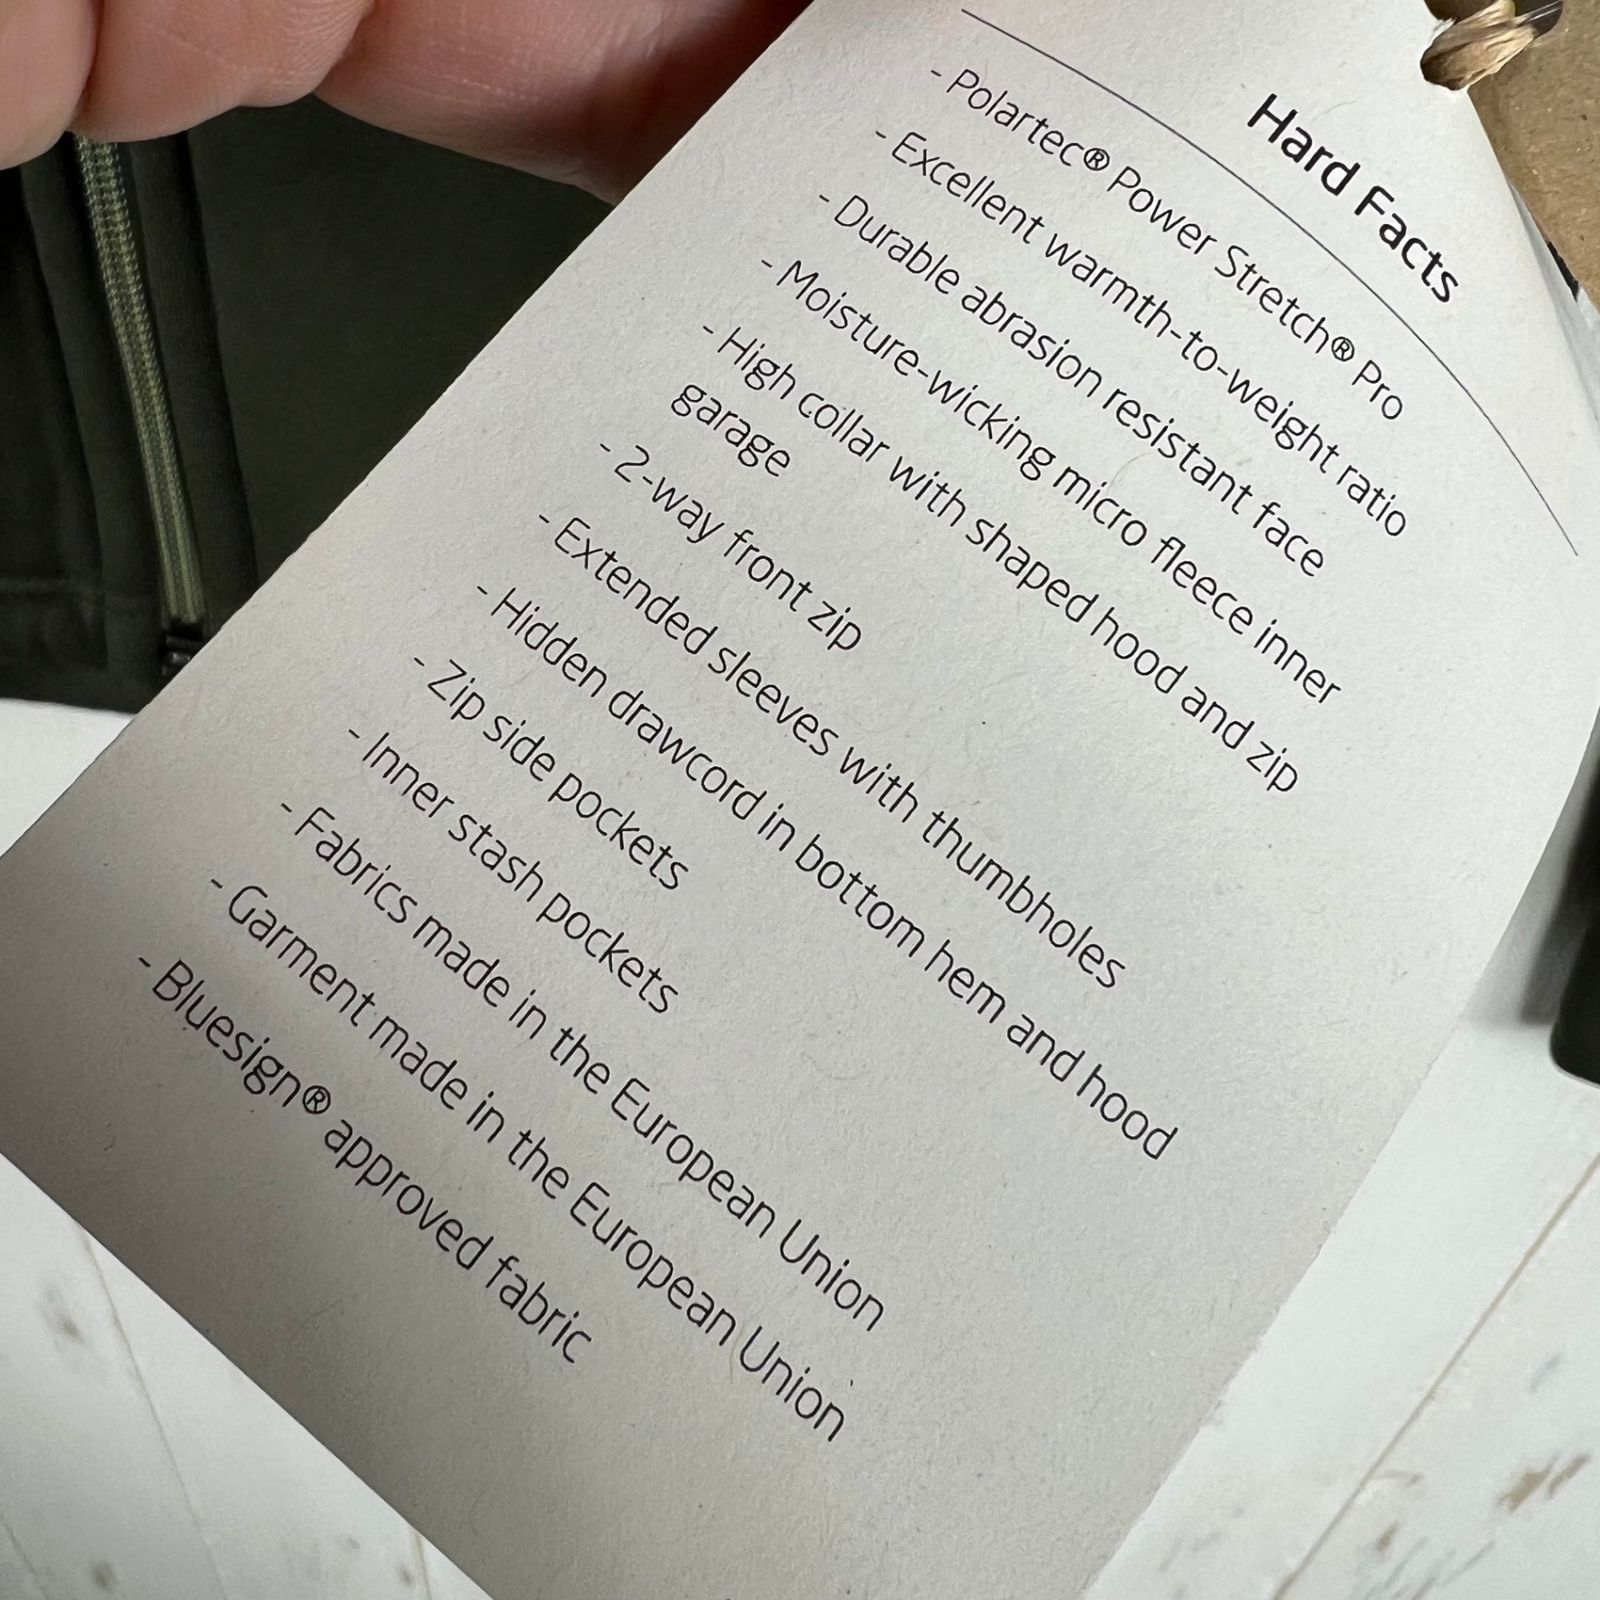 Hard Facts
- Polartec® Power Stretch® Pro
- Excellent warmth-to-weight ratio
- Durable abrasion resistant face
- Moisture-wicking micro fleece inner
- High collar with shaped hood and zip
garage
- 2-way front zip
- Extended sleeves with thumbholes
- Hidden drawcord in bottom hem and hood
- Zip side pockets
- Inner stash pockets
- Fabrics made in the European Union
- Garment made in the European Union
- Bluesign® approved fabric